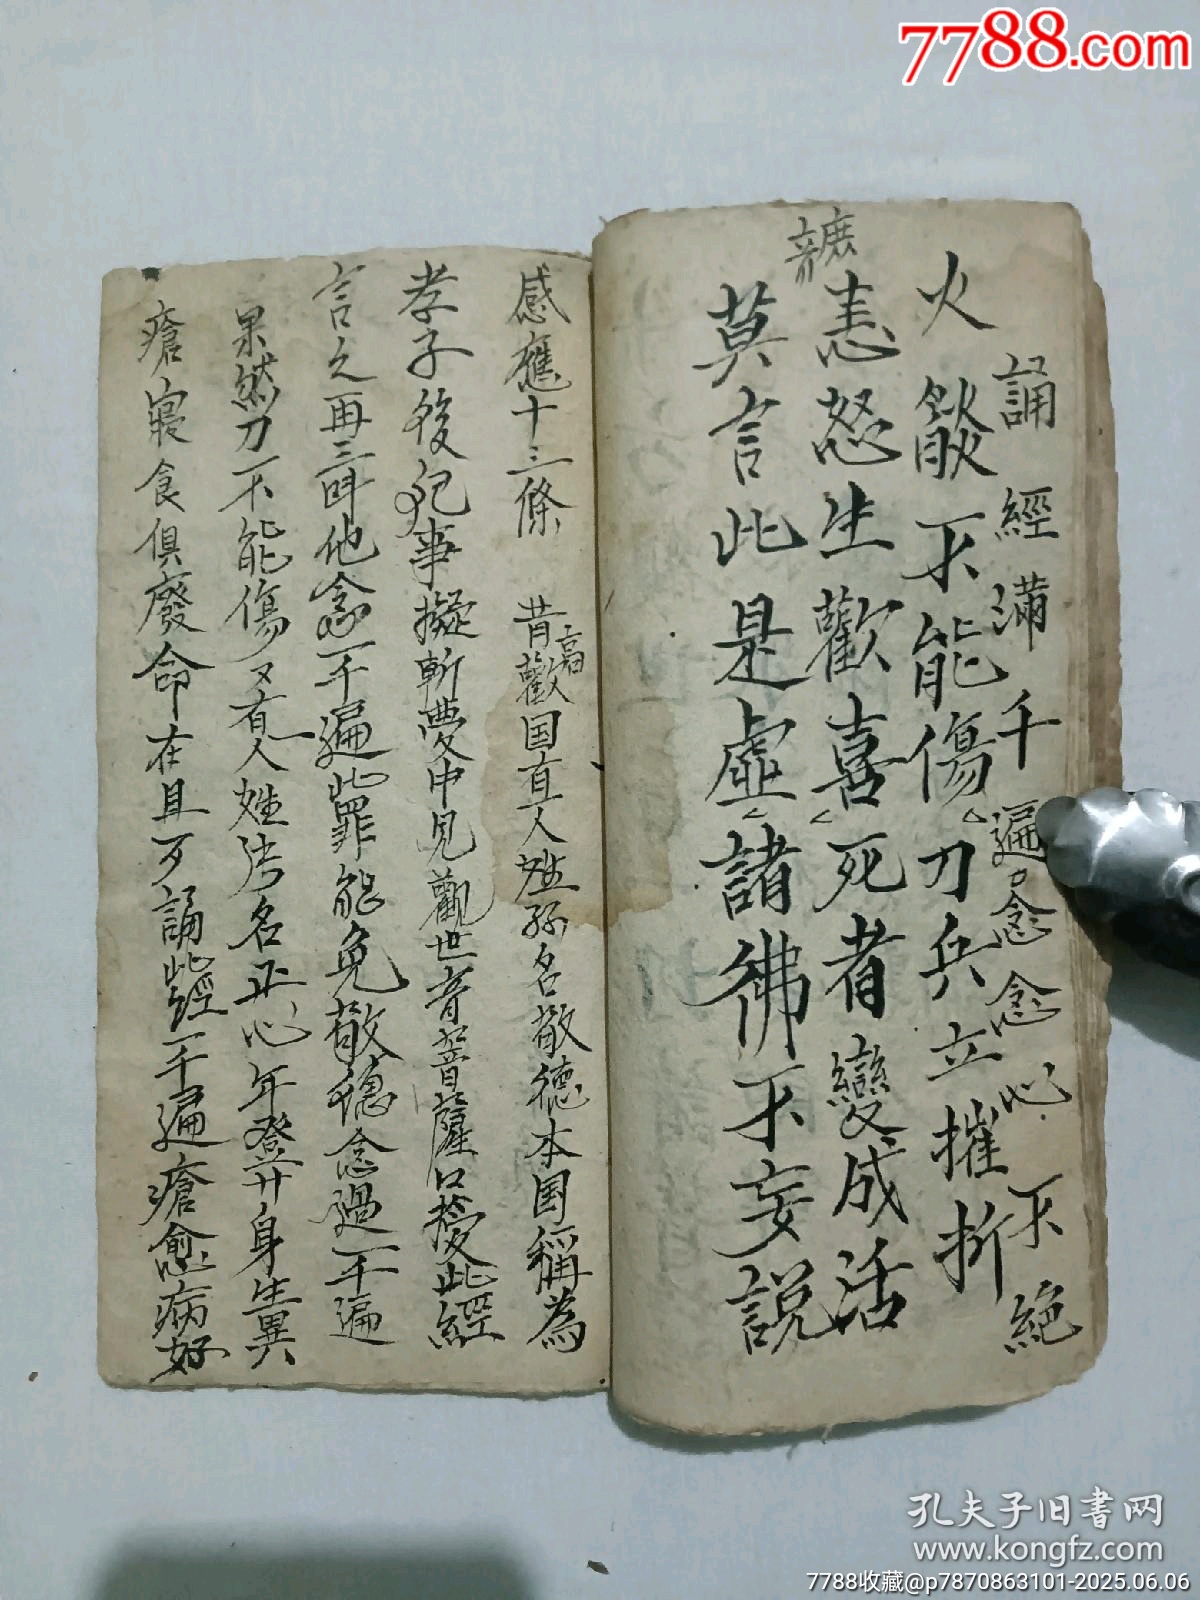 7788.com
誦經滿千遍念念心不絕
火燄不能傷刀兵立摧折
恚怒生歡喜死者變成活
莫言此是虛諸佛不妄說
感應十三條 昔高歡国有一人姓孫名敬德本国稱為
孝子後犯事擬斬夢中見觀世音菩薩口授此經
言之再三叫他念一千遍此罪能免敬德念過一千遍
果然刀不能傷又有一人姓张名正心年登廿身生異
瘡寢食俱廢命在旦夕誦此經一千遍瘡愈病好
孔夫子旧书网
www.kongfz.com
7788收藏@p7870863101-2025.06.06